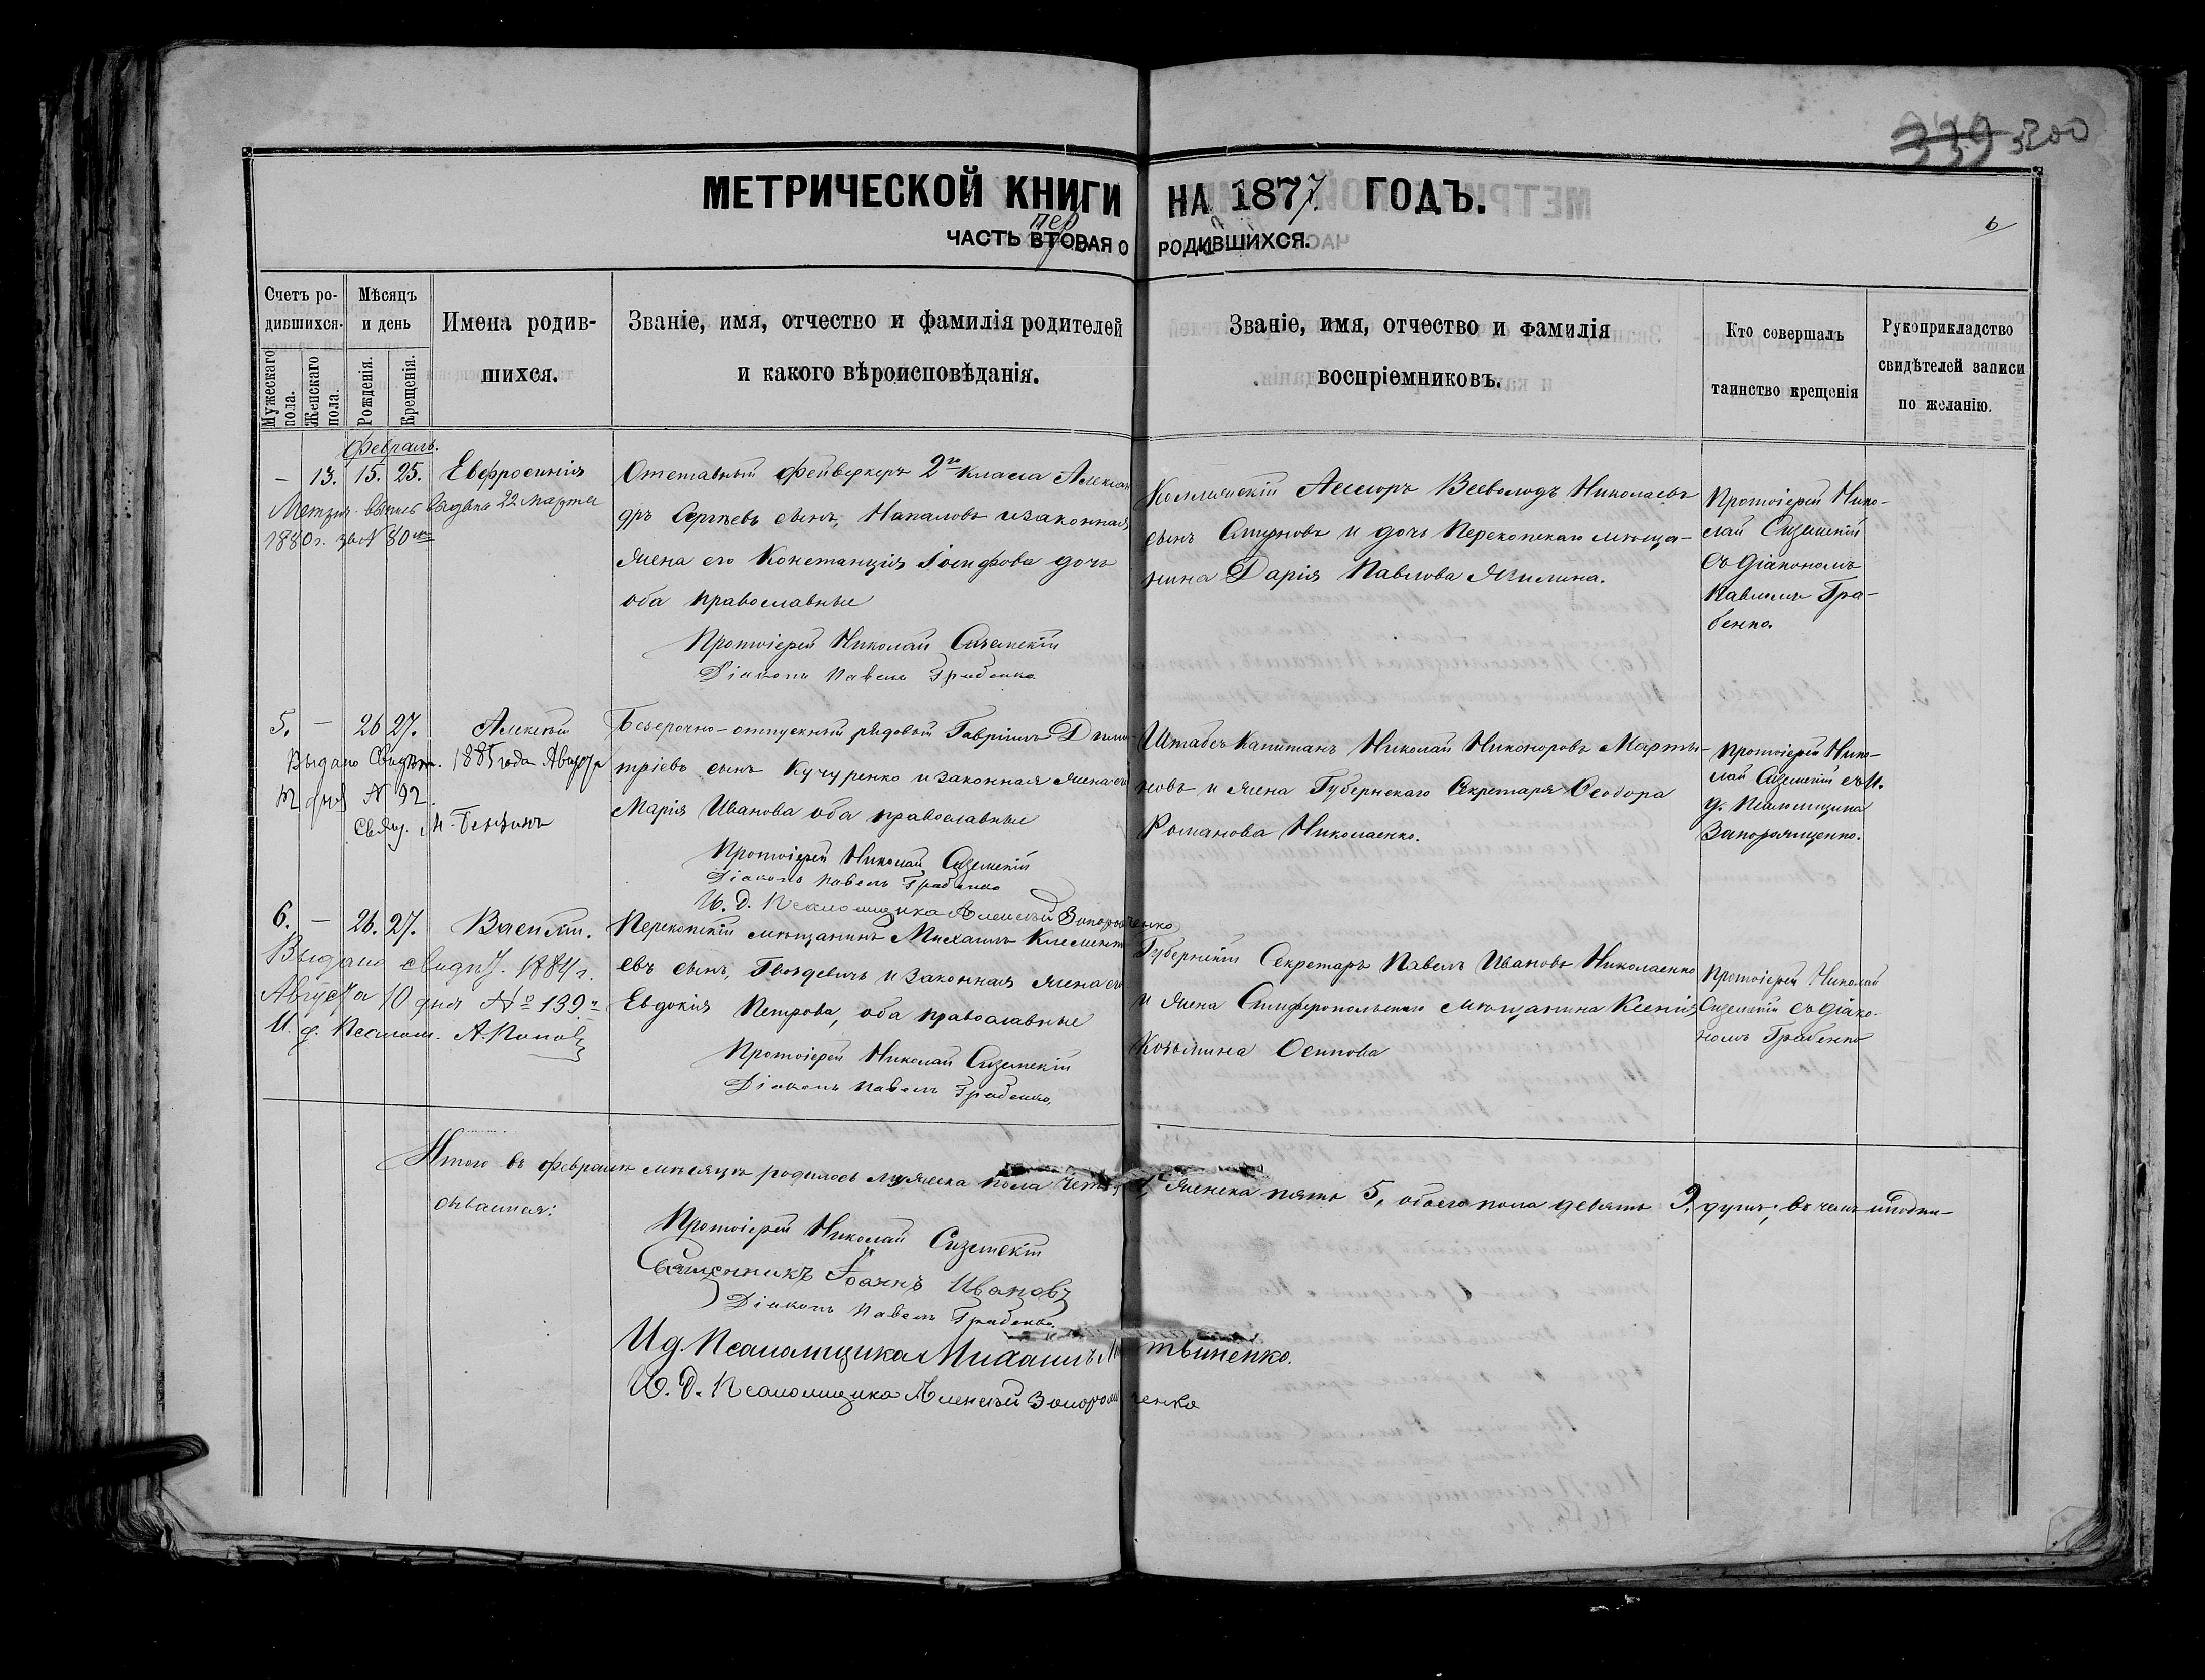 339 200
МЕТРИЧЕСКОЙ КНИГИ НА 1877 ГОДЪ.
пер
ЧАСТЬ ВТОРАЯ О РОДИВШИХСЯ.
6
Счетъ ро-
дившихся.
Мужескаго пола.
Женскаго пола.
Мѣсяцъ
и день
Рожденія.
Крещенія.
Имена родив-
шихся.
Званіе, имя, отчество и фамилія родителей
и какого вѣроисповѣданія.
Званіе, имя, отчество и фамилія
воспріемниковъ.
Кто совершалъ
таинство крещенія
Рукоприкладство
свидѣтелей записи
по желанію.
Февраль.
– 13. 15. 25. Евфросинія
Метрич. выпись выдана 22 Марта
1880 г. за № 80
Отставный Фейверкеръ 2го класса Алексан
дръ Сергѣевъ сынъ, Напаловъ и законная
жена его Констанція Іосифова дочь
оба православные
Протоіерей Николай Сиземскій
Діаконъ Павелъ Грабенко
Коллежскій Ассесоръ Всеволодъ Николаевъ
сынъ Смирновъ и дочь Перекопскаго мѣща-
нина Дарія Павлова Жилина.
Протоіерей Нико-
лай Сиземскій
съ діакономъ
Павломъ Гра-
бенко.
5. – 26 27. Алексѣй
Выдано Свидѣт. 1885 года Августа
12 дня № 92.
Свящ. М.
Безсрочно-отпускный рядовый Гавріилъ Дими-
тріевъ сынъ Кучуренко и законная жена его
Марія Иванова оба православные
Протоіерей Николай Сиземскій
Діаконъ Павелъ Грабенко
И. Д. Псаломщика Алексѣй Запорожченко
Штабсъ-Капитанъ Николай Никоноровъ Марты-
новъ и жена Губернскаго Секретаря Ѳеодора
Романова Николаенко.
Протоіерей Нико-
лай Сиземскій съ И.
д. Псаломщика
Запорожченко.
6. – 26. 27. Василій.
Выдано свидѣт. 1884 г.
Августа 10 дня № 139.
И. д. Псалом. А. Поповъ
Перекопскій мѣщанинъ Михаилъ Клемент
евъ сынъ, Гвоздевичъ и законная жена его
Евдокія Петрова, оба православные
Протоіерей Николай Сиземскій
Діаконъ Павелъ Грабенко,
Губернскій Секретарь Павелъ Ивановъ Николаенко
и жена Симферопольскаго мѣщанина Ксенія
Козьмина Осипова
Протоіерей Николай
Сиземскій съ діако-
номъ Грабенко
Итого въ февралѣ мѣсяцѣ родилось мужеска пола женска пять 5, обоего пола девять 9. душъ; въ чемъ и подпи-
сываемся:
Протоіерей Николай Сиземскій
Священникъ Іоаннъ Ивановъ
Діаконъ Павелъ Грабенко.
И д. Псаломщика Михаилъ
И. Д. Псаломщика Алексѣй Запорожченко